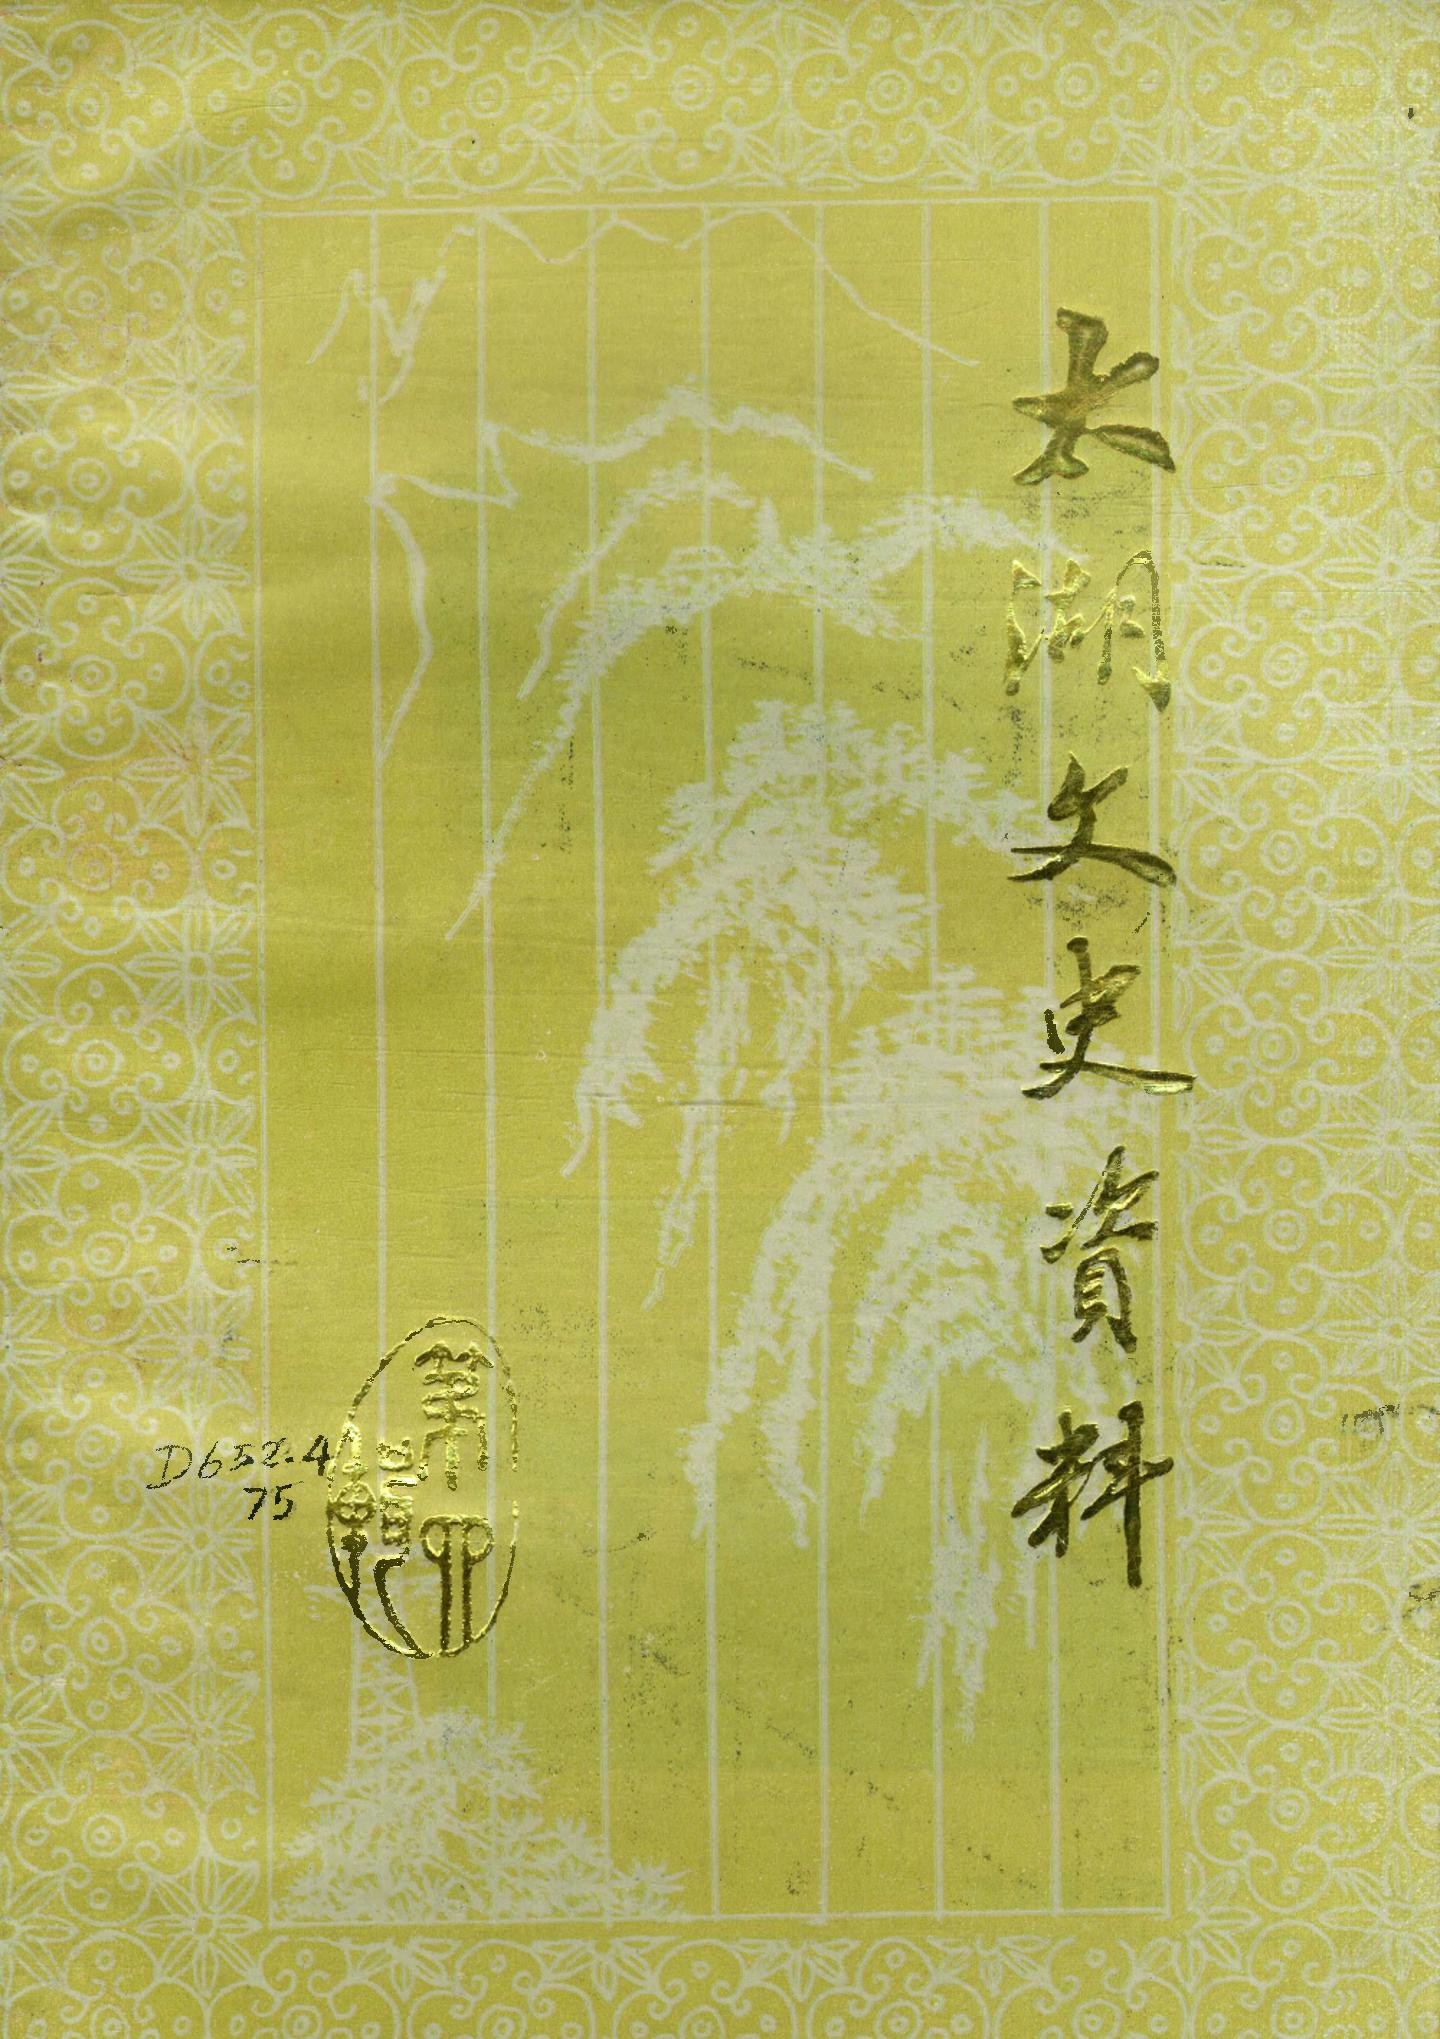 太湖文史資料
第四辑
D652.4
75